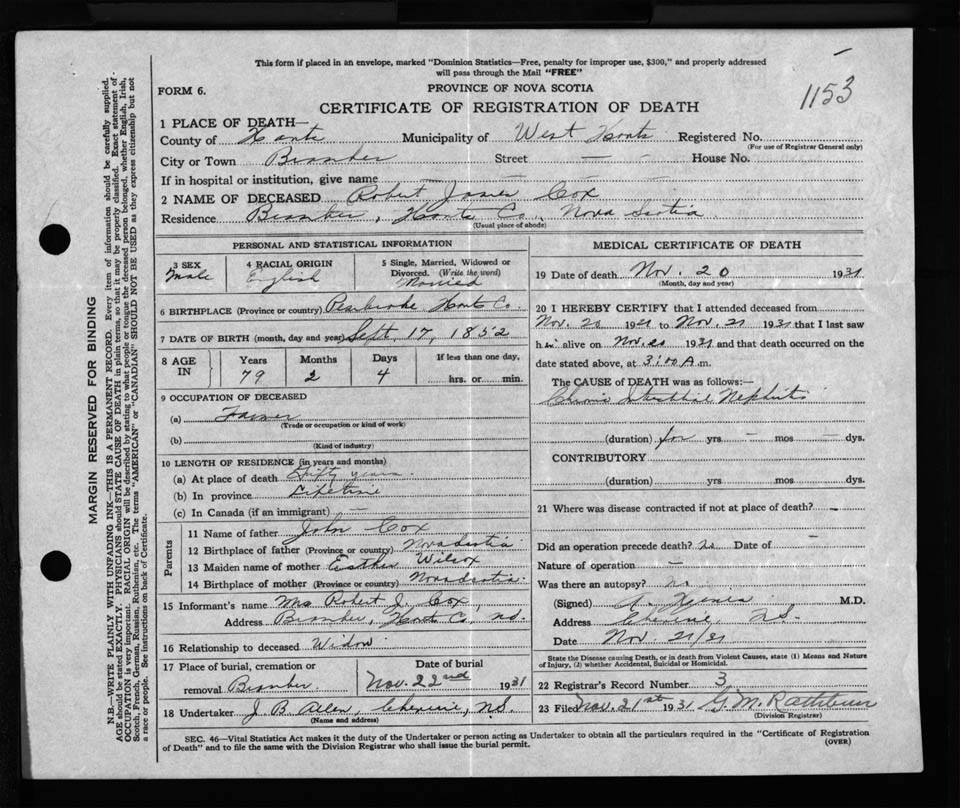 This form if placed in an envelope, marked "Dominion Statistics—Free, penalty for improper use, $300," and properly addressed
will pass through the Mail "FREE"
1153
FORM 6.
PROVINCE OF NOVA SCOTIA
CERTIFICATE OF REGISTRATION OF DEATH
1 PLACE OF DEATH—
County of Hants Municipality of West Hants Registered No.
(For use of Registrar General only)
City or Town Bramber Street — — House No.
If in hospital or institution, give name — — — —
2 NAME OF DECEASED Robert James Cox
Residence Bramber, Hants Co., Nova Scotia
(Usual place of abode)
PERSONAL AND STATISTICAL INFORMATION
3 SEX Male
4 RACIAL ORIGIN English
5 Single, Married, Widowed or Divorced. (Write the word) Married
6 BIRTHPLACE (Province or country) Pembroke Hants Co.
7 DATE OF BIRTH (month, day and year) Sept. 17, 1852
8 AGE IN Years 79 Months 2 Days 4 If less than one day, hrs. or min.
9 OCCUPATION OF DECEASED
(a) Farmer
(Trade or occupation or kind of work)
(b)
(Kind of industry)
10 LENGTH OF RESIDENCE (in years and months)
(a) At place of death Fifty years
(b) In province Lifetime
(c) In Canada (if an immigrant) —
Parents
11 Name of father John Cox
12 Birthplace of father (Province or country) Nova Scotia
13 Maiden name of mother Esther Wilcox
14 Birthplace of mother (Province or country) Nova Scotia
15 Informant's name Mrs Robert J. Cox,
Address Bramber, Hants Co., N.S.
16 Relationship to deceased Widow
17 Place of burial, cremation or removal Bramber
Date of burial Nov. 22nd 1931
18 Undertaker J B Allen, Cheverie, N.S.
(Name and address)
MEDICAL CERTIFICATE OF DEATH
19 Date of death Nov. 20 1931
(Month, day and year)
20 I HEREBY CERTIFY that I attended deceased from
Nov. 20 1931 to Nov. 21 1931 that I last saw
him alive on Nov. 20 1931 and that death occurred on the
date stated above, at 3:00 A.m.
The CAUSE OF DEATH was as follows:—
Chronic Interstitial Nephritis
(duration) for yrs — mos — dys.
CONTRIBUTORY
(duration) yrs mos dys.
21 Where was disease contracted if not at place of death? —
Did an operation precede death? no Date of —
Nature of operation —
Was there an autopsy? no
(Signed) M.D.
Address Cheverie, N.S.
Date Nov 21/31
State the Disease causing Death, or in death from Violent Causes, state (1) Means and Nature
of Injury, (2) whether Accidental, Suicidal or Homicidal.
22 Registrar's Record Number 3
23 Filed Nov. 21st 1931 G.M. Rathbun
(Division Registrar)
SEC. 46—Vital Statistics Act makes it the duty of the Undertaker or person acting as Undertaker to obtain all the particulars required in the "Certificate of Registration
of Death" and to file the same with the Division Registrar who shall issue the burial permit.
(OVER)
MARGIN RESERVED FOR BINDING
N.B.—WRITE PLAINLY WITH UNFADING INK—THIS IS A PERMANENT RECORD. Every item of information should be carefully supplied.
AGE should be stated EXACTLY. PHYSICIANS should STATE CAUSE OF DEATH in plain terms, so that it may be properly classified. Exact statement of
OCCUPATION is very important. RACIAL ORIGIN will be described by stating to what people or tongue the deceased person belonged, whether English, Irish,
Scotch, French, German, Russian, Ruthenian, etc. The terms "AMERICAN" or "CANADIAN" SHOULD NOT BE USED as they express citizenship but not
a race or people. See instructions on back of Certificate.